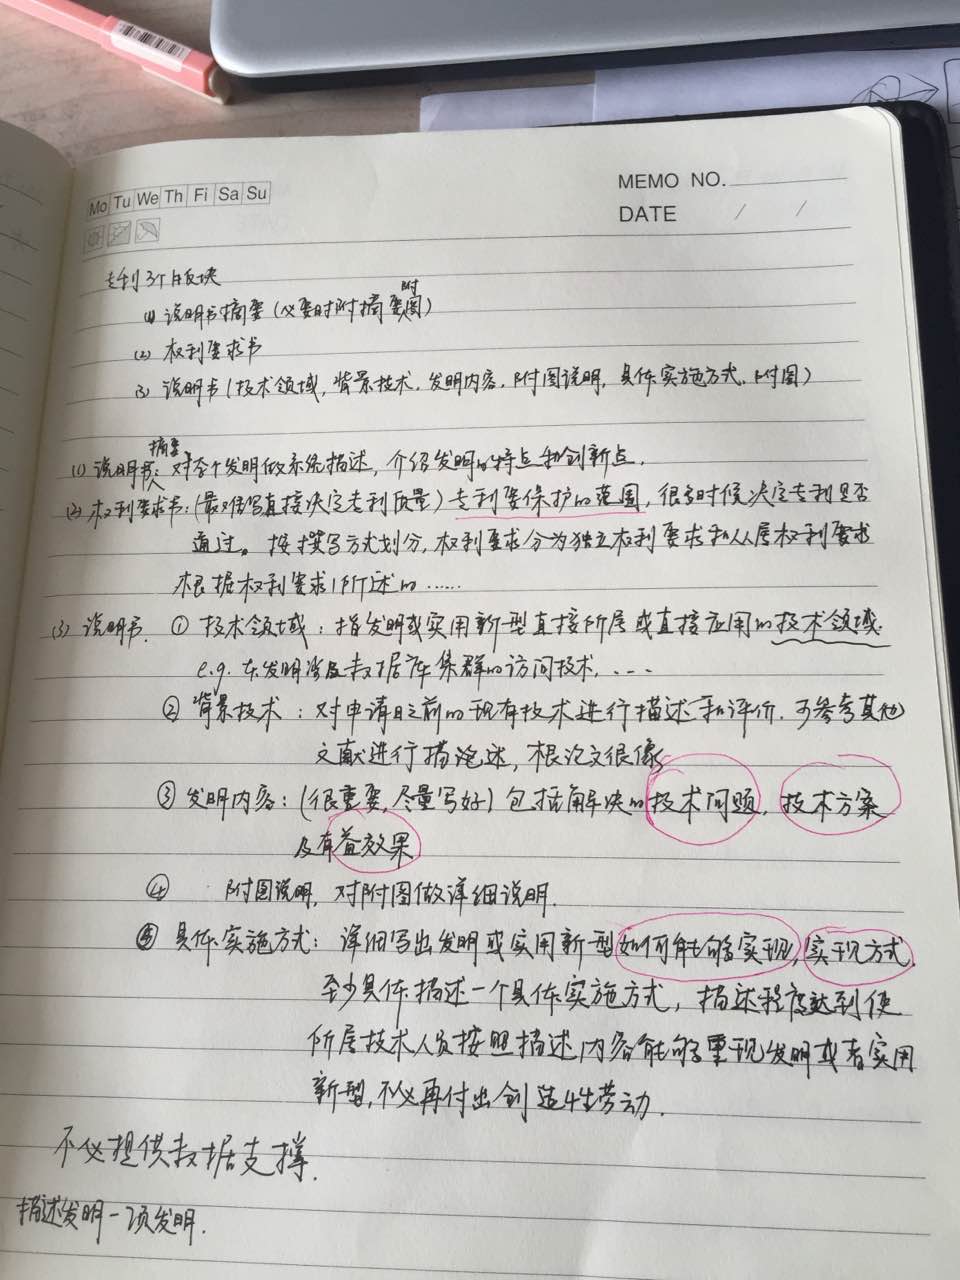 Mo Tu We Th Fi Sa Su
MEMO NO.
DATE / /
专利3个板块
(1) 说明书摘要(必要时附摘要附图)
(2) 权利要求书
(3) 说明书(技术领域,背景技术,发明内容,附图说明,具体实施方式,附图)
(1) 说明书摘要:对整个发明做系统描述,介绍发明的特点和创新点.
(2) 权利要求书:(最难写直接决定专利质量)专利要保护的范围,很多时候决定专利是否
通过。按撰写方式划分,权利要求分为独立权利要求和从属权利要求
根据权利要求1所述的……
(3) 说明书. ① 技术领域:指发明或实用新型直接所属或直接应用的技术领域.
e.g. 本发明涉及数据库集群的访问技术,----
② 背景技术:对申请日之前的现有技术进行描述和评价.可参考其他
文献进行描述,根论文很像
③ 发明内容:(很重要,尽量写好)包括解决的技术问题,技术方案
及有益效果
④ 附图说明,对附图做详细说明.
⑤ 具体实施方式:详细写出发明或实用新型如何能够实现,实现方式.
至少具体描述一个具体实施方式,描述程度达到使
所属技术人员按照描述内容能够重现发明或者实用
新型,不必再付出创造性劳动.
不必提供数据支撑.
描述发明一项发明.